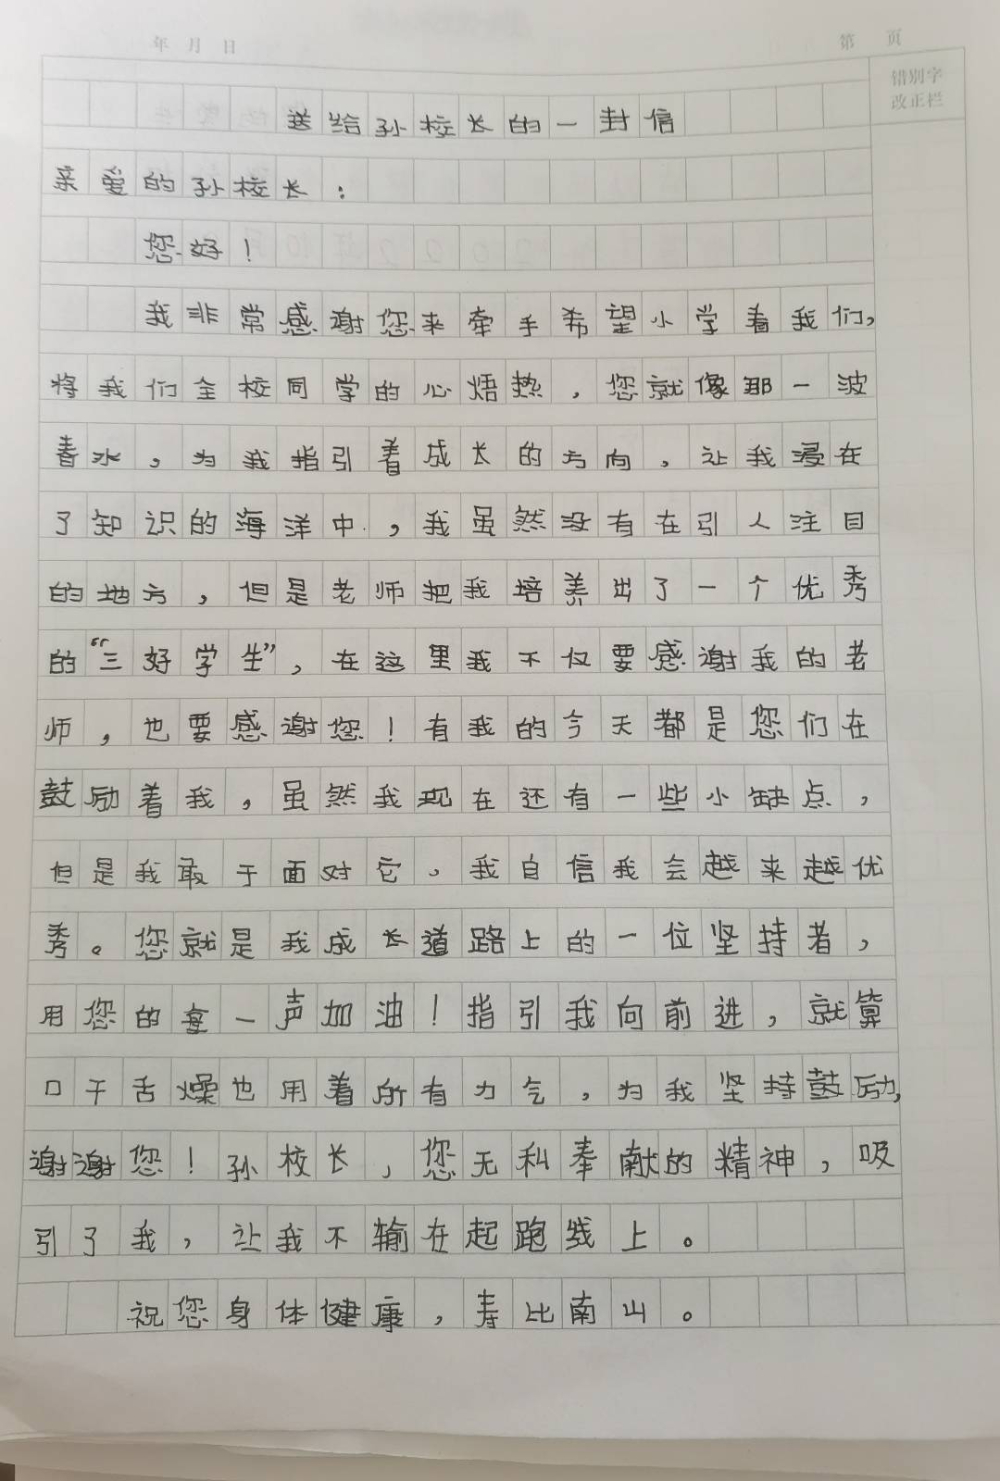 年 月 日
第 页
错别字
改正栏
送给孙校长的一封信
亲爱的孙校长：
您好！
我非常感谢您来牵手希望小学看我们，
将我们全校同学的心焐热，您就像那一波
春水，为我指引着成长的方向，让我浸在
了知识的海洋中，我虽然没有在引人注目
的地方，但是老师把我培养出了一个优秀
的“三好学生”，在这里我不仅要感谢我的老
师，也要感谢您！有我的今天都是您们在
鼓励着我，虽然我现在还有一些小缺点，
但是我敢于面对它，我自信我会越来越优
秀。您就是我成长道路上的一位坚持者，
用您的每一声加油！指引我向前进，就算
口干舌燥也用着所有力气，为我坚持鼓励，
谢谢您！孙校长，您无私奉献的精神，吸
引了我，让我不输在起跑线上。
祝您身体健康，寿比南山。